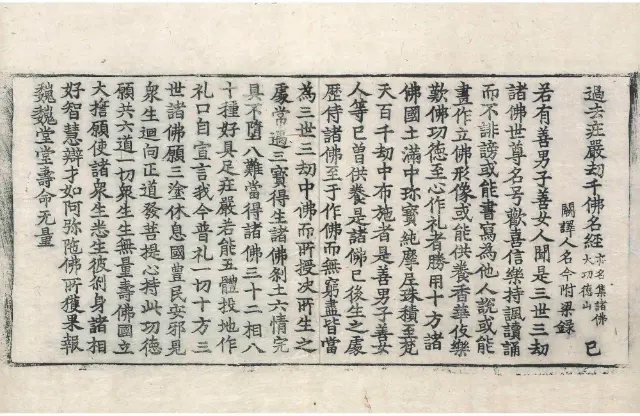 過去庄嚴劫千佛名經 亦名集諸佛大功德山 巳
闕譯人名今附梁録
若有善男子善女人聞是三世三劫
諸佛世尊名号歡喜信樂持諷讀誦
而不誹謗或能書寫為他人說或能
畫作立佛形像或能供養香華伎樂
歎佛功德至心作礼者勝用十方諸
佛國土滿中珎寶純摩尼珠積至梵
天百千劫中布施者是善男子善女
人等已曾供養是諸佛已後生之處
歷侍諸佛至于作佛而無窮盡皆當
為三世三劫中佛而所授決所生之
處常遇三寶得生諸佛刹土六情完
具不墮八難當得諸佛三十二相八
十種好具足庄嚴若能五體投地作
礼口自宣言我今普礼一切十方三
世諸佛願三塗休息國豊民安邪見
衆生迴向正道發菩提心持此功德
願共六道一切衆生生無量壽佛國立
大搚願使諸衆生悉生彼刹身諸相
好智慧辯才如阿弥陁佛所獲果報
巍巍堂堂壽命无量